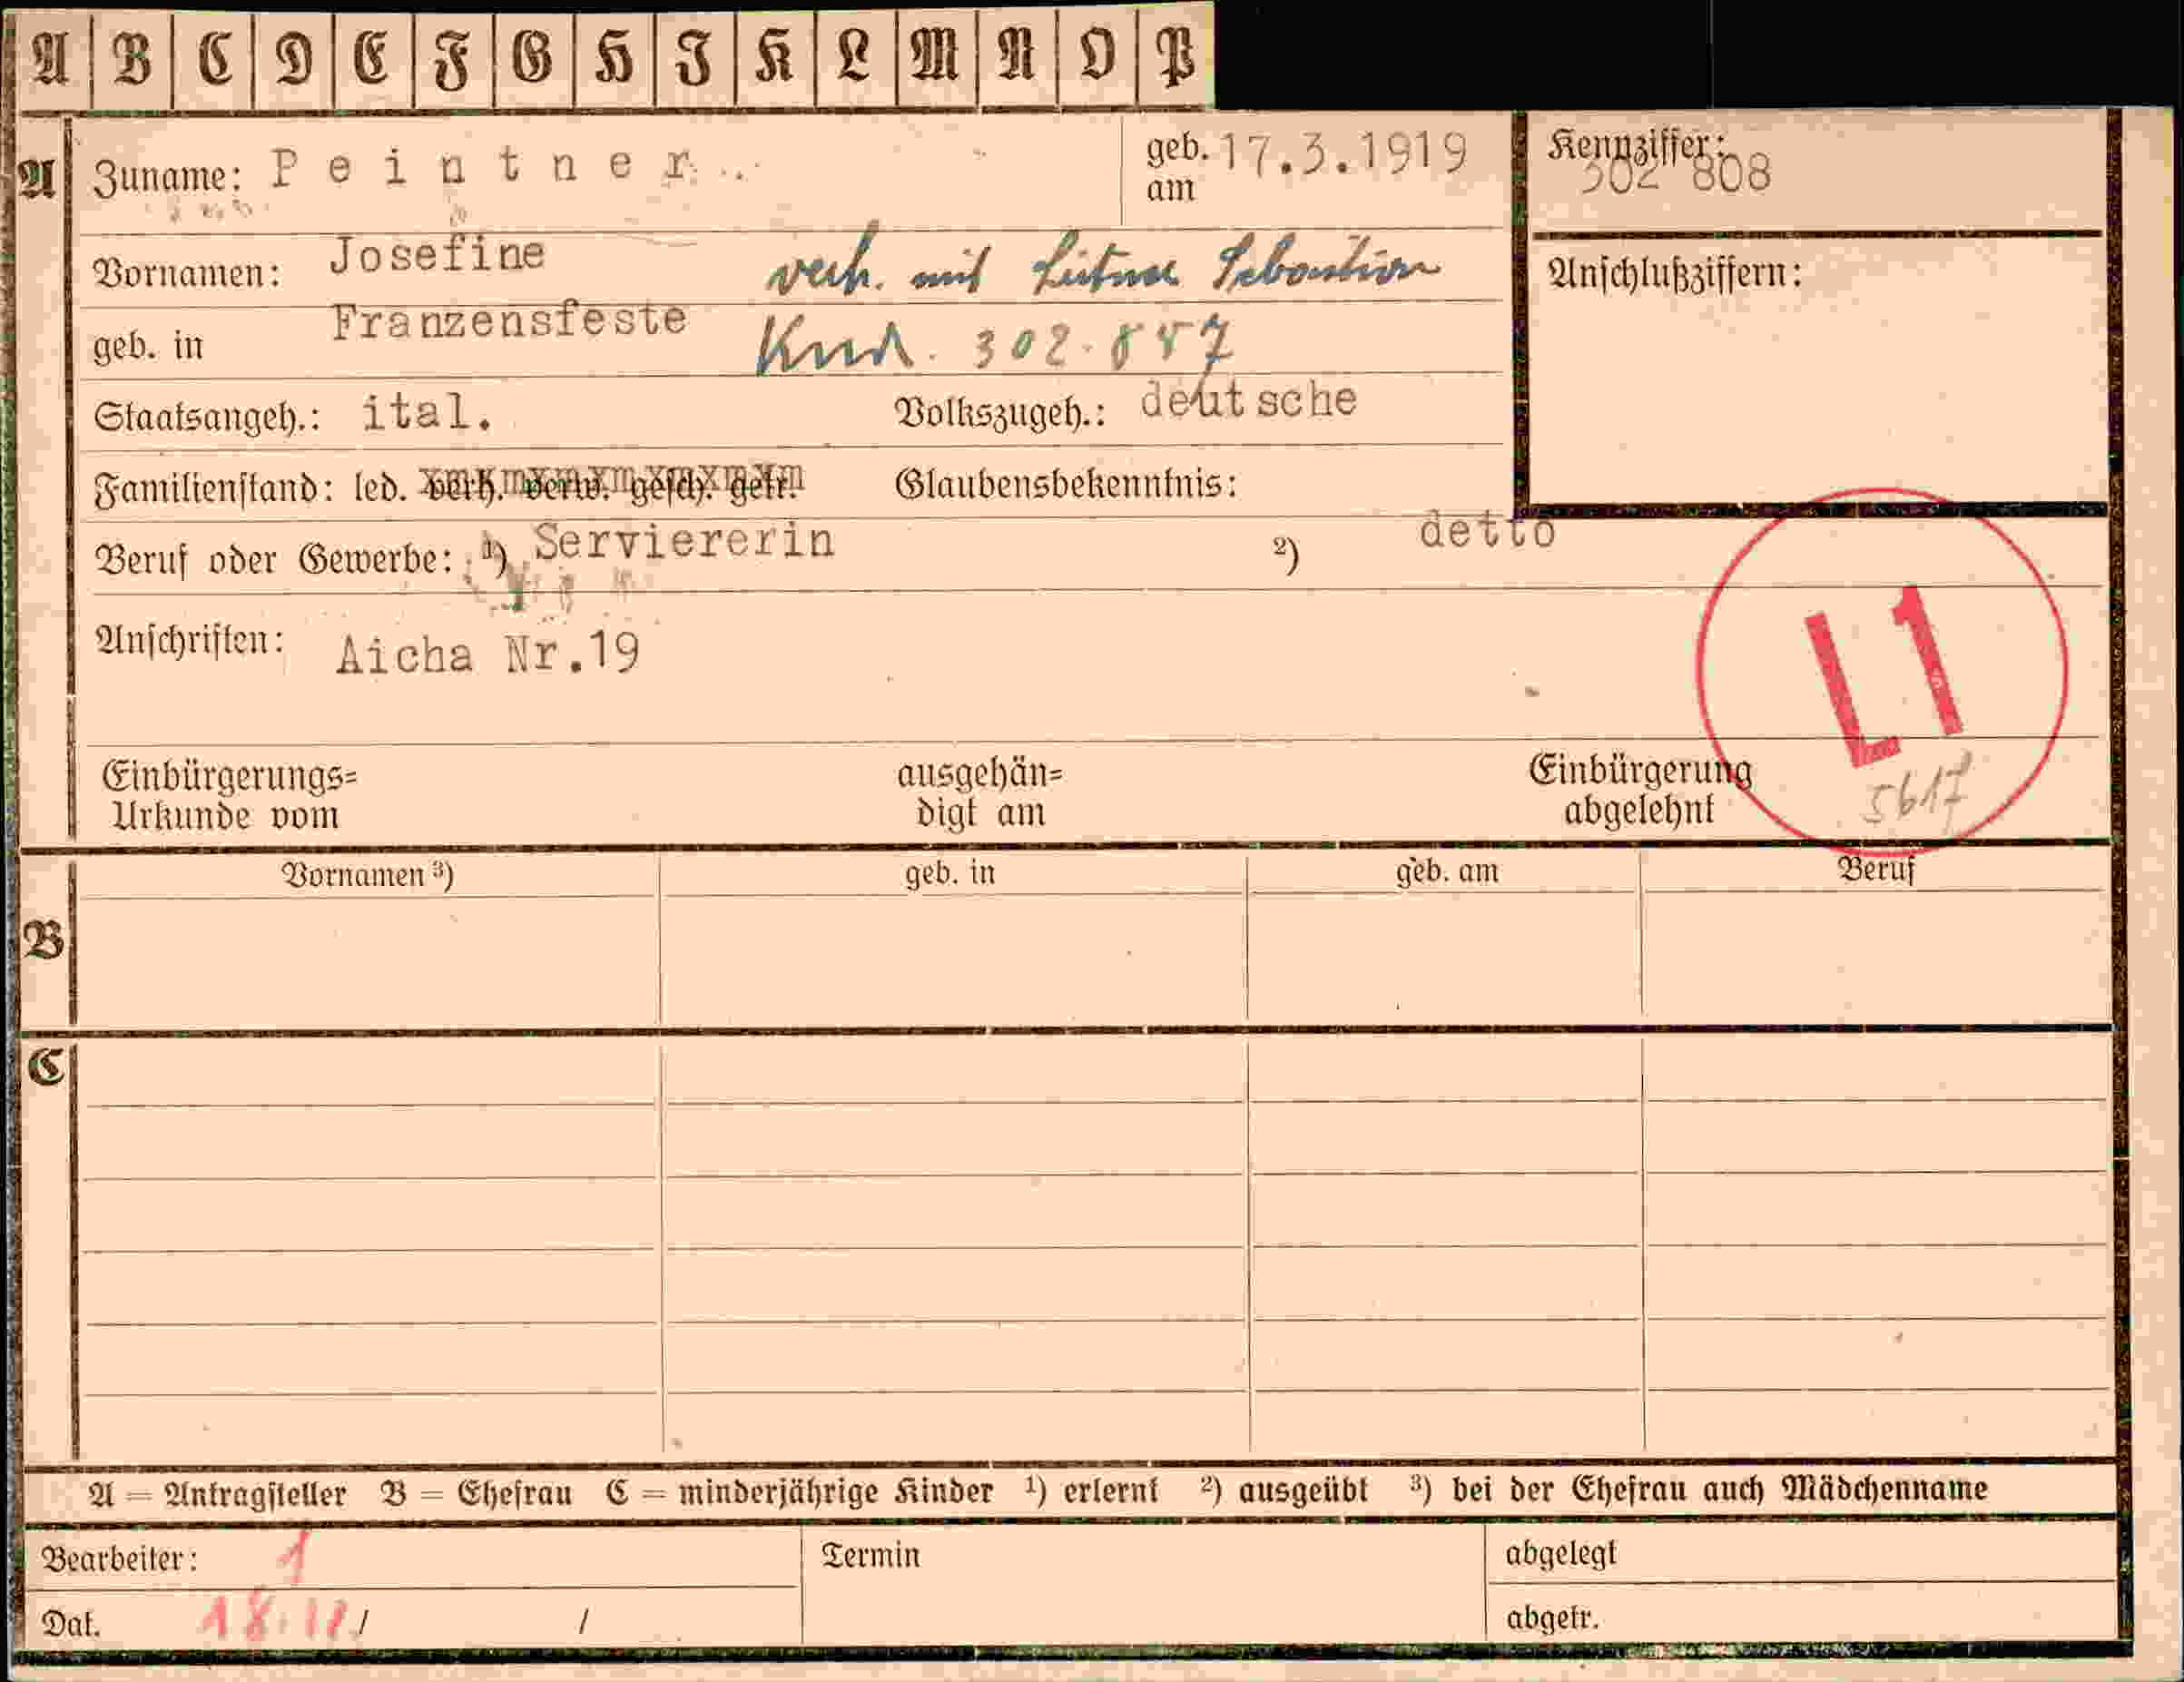 A B C D E F G H I K L M N O P
A Zuname: Peintner
geb. am 17.3.1919
Kennziffer: 302 808
Vornamen: Josefine verh. mit Sebastian
Anschlußziffern:
geb. in Franzensfeste 302.857
Staatsangeh.: ital. Volkszugeh.: deutsche
Familienstand: led. verh. verw. gesch. getr. Glaubensbekenntnis:
Beruf oder Gewerbe: ¹) Serviererin ²) detto
Anschriften: Aicha Nr.19
L1
Einbürgerungs= ausgehän= Einbürgerung
Urkunde vom digt am abgelehnt
5617
Vornamen ³) geb. in geb. am Beruf
B
C
A = Antragsteller B = Ehefrau C = minderjährige Kinder ¹) erlernt ²) ausgeübt ³) bei der Ehefrau auch Mädchenname
Bearbeiter: 1 Termin abgelegt
Dat. 18.11. / / abgetr.